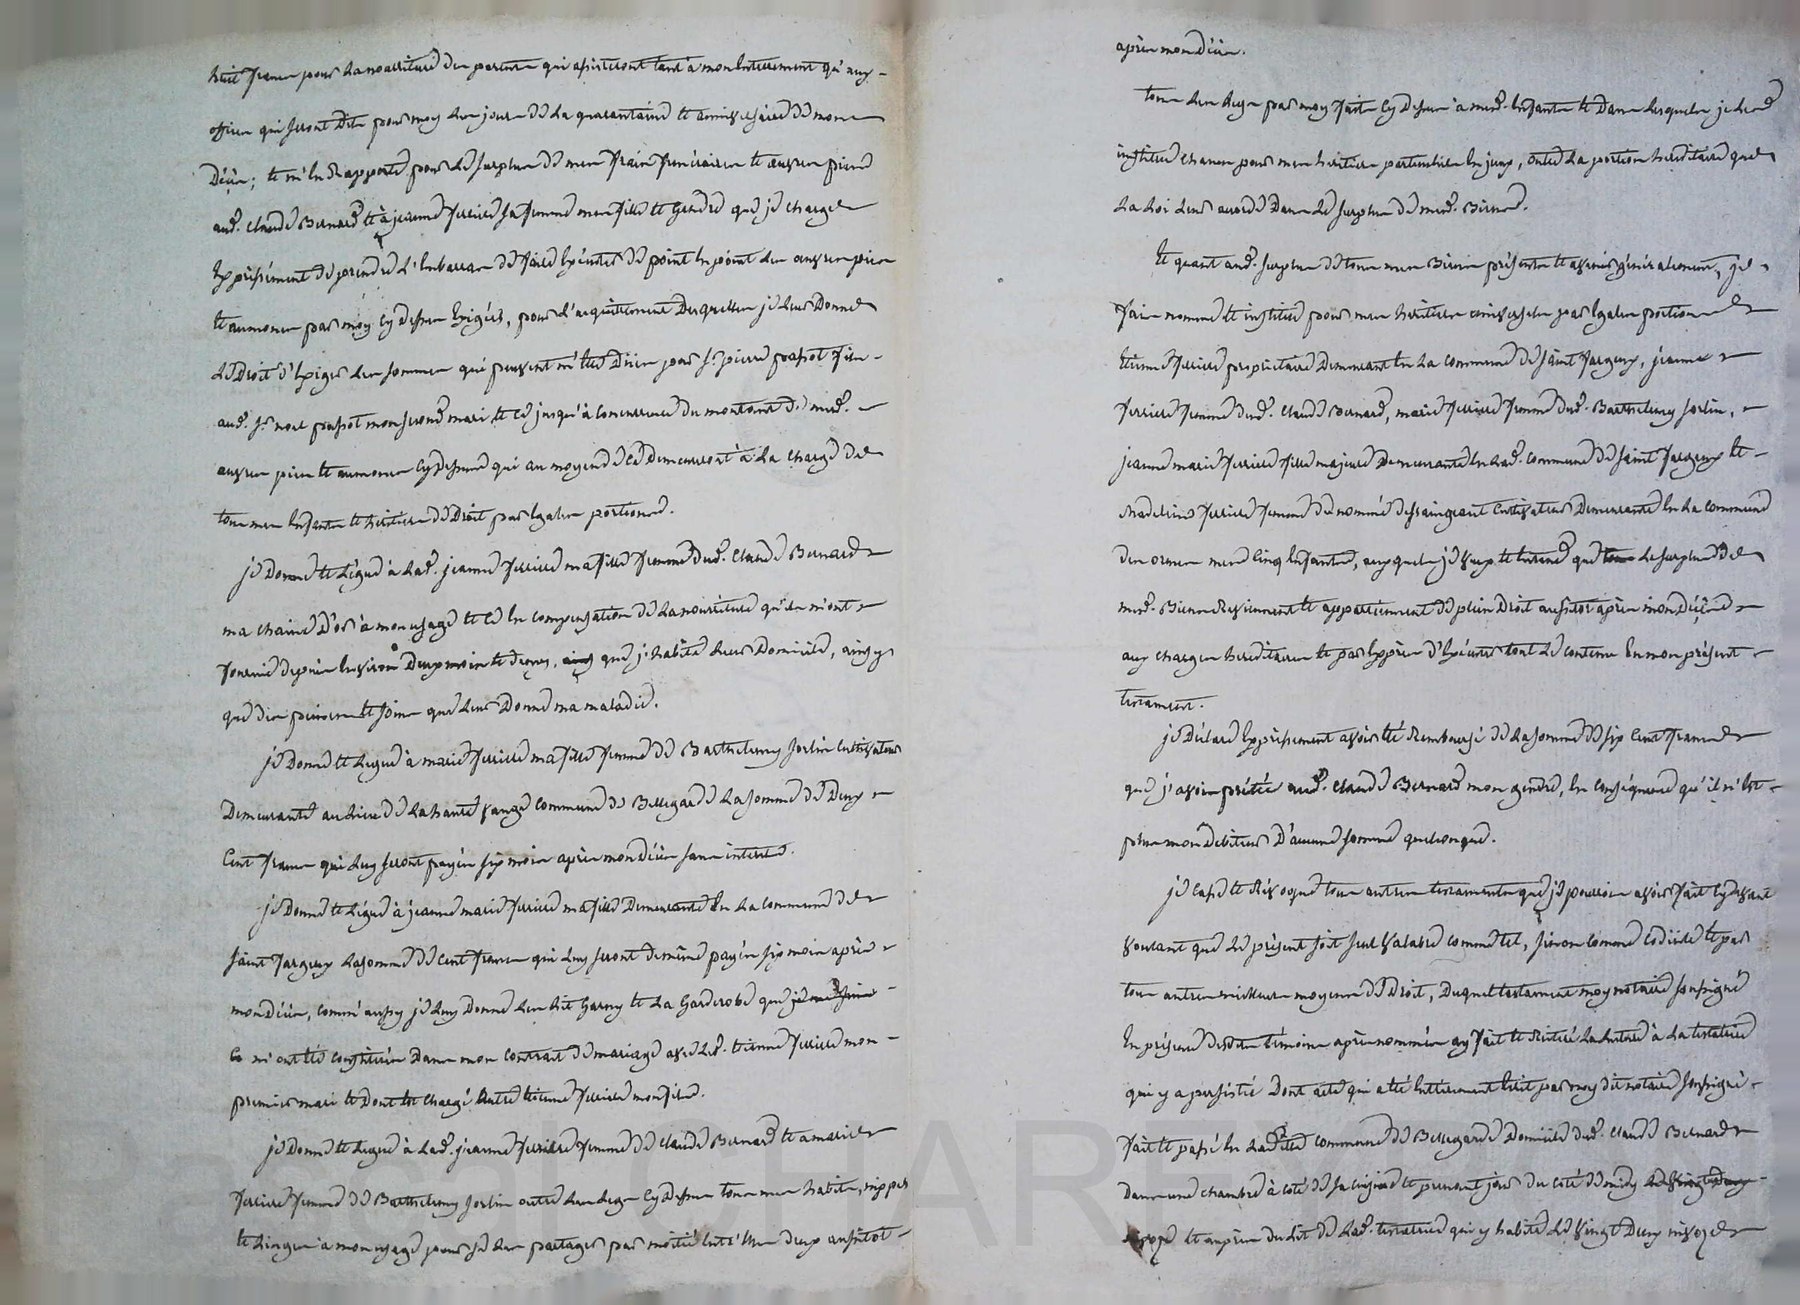 huit francs pour la nourriture des parents qui assisteront tant à mon enterrement qu'aux
offices qui seront dits pour moy les jours de la quarantaine et anniversaire de mon
décès; et m'en rapporte pour le surplus de mes frais funeraires et œuvres pies
aud. Claude Bernard et à jeanne ferriere sa femme mes fille et gendre que je charge
expressément de prendre l'embarras de faire exécuter de point en point les œuvres pies
et aumones par moy cy dessus exigées, pour l'acquittement desquelles je leur donne
le droit d'exiger les sommes qui peuvent m'etre dües par sr. pierre passot fils
aud. sr. noel passot mon second mari et ce jusqu'à concurrence du montant de mesd.
œuvres pies et aumones cy dessus qui au moyen de ce demeureront à la charge de
tous mes enfants et heritiers de droit par egales portions.
je donne et légue à lad. jeanne ferriere ma fille femme dud. Claude Bernard
ma chaine d'or à mon usage et ce en compensation de la nourriture qu'ils m'ont
fournie depuis environ deux mois et demy, que j'habite leur domicile, ainsy
que des peines et soins que leur donne ma maladie.
je donne et legue à marie ferriere ma fille femme de Barthelemy Jorlin cultivateur
demeurante au lieu de la haute vauge commune de Bellegarde la somme de deux
cent francs qui luy seront payés six mois après mon décès sans interet.
je donne et légue à jeanne marie ferriere ma fille demeurante en la commune de
saint fargeux la somme de cent francs qui luy seront de même payés six mois après
mon décès, comm' aussy je luy donne les lit garny et la garderobe que je me suis
m'ont été constitués dans mon contrat de mariage avec led. etienne ferriere mon
premier mari et dont est chargé etienne ferriere mon fils.
je donne et legue à lad. jeanne ferriere femme de Claude Bernard et a marie
ferriere femme de Barthelemy Jorlin outre les legs cy dessus tous mes habits, nippes
et linges à mon usage pour se les partager par moitié entr'elles deux aussitot
après mon décès.
tous les legs par moy faits cy dessus à mesd. enfants et dans lesquels je les
institue chacun pour mes heritiers particuliers en iceux, outre la portion hereditaire que
la loi leur accorde dans le surplus de mesd. Biens.
et quant aud. surplus de tous mes Biens présents et avenir généralement, je
fais nomme et institue pour mes heritiers universels par egales portions
etienne ferriere propriétaire demeurant en la commune de saint fargeux, jeanne
ferriere femme dud. Claude Bernard, marie ferriere femme dud. Barthelemy Jorlin,
jeanne marie ferriere fille majeure demeurante en lad. commune de saint fargeux et
madeleine ferriere femme de nommé dessaingeant cultivateur demeurante en la commune
des ormes mes cinq enfants, auxquels je veux et entend que le surplus de
mesd. Biens reviennent et appartiennent de plein droit aussitot après mon décès
aux charges hereditaires et par exprès d'exécuter tout le contenu en mon présent
testament.
je déclare expressement avoir été remboursé de la somme de six cent francs
que j'avois prêtée aud. Claude Bernard mon gendre, en conséquence qu'il n'est
plus mon débiteur d'aucune somme quelconque.
je casse et révoque tous autres testaments que je pourrois avoir fait cy devant
voulant que le présent soit seul valable comme tel, sinon comme codicile et par
tous autres meilleurs moyens de droit, duquel testament moy notaire soussigné
en présence desdits témoins après nommés ay fait et réitéré la lecture à la testatrice
qui y a persisté dont acte qui a été entierement ecrit par moy dit notaire soussigné
fait et passé en ladite commune de Bellegarde domicile dud. Claude Bernard
dans une chambre à coté de sa cuisine et prenant jour du coté de midy
et auprès du lit de lad. testatrice qui y habite le vingt deux nivose